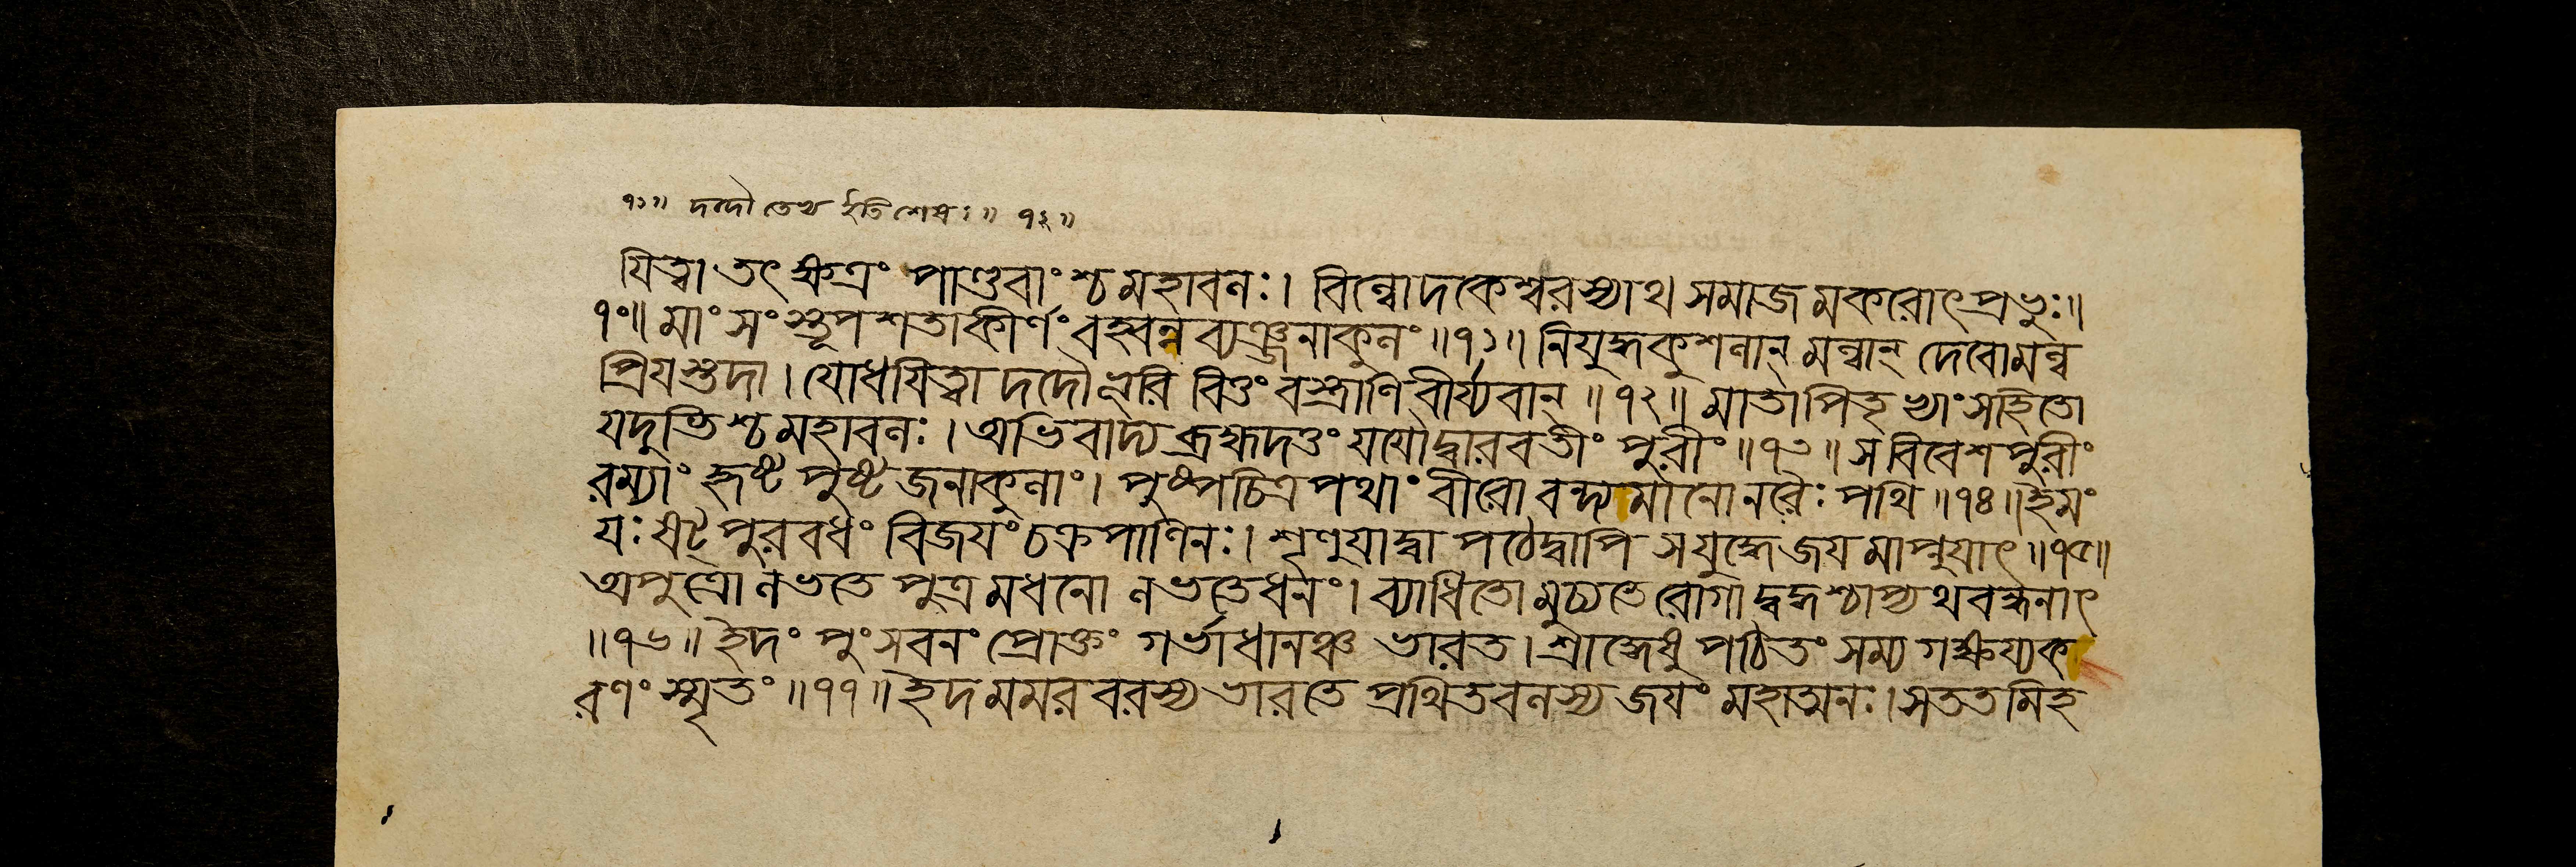 ৭১॥ দদৌ তেথ ইতি শেষঃ॥ ৭২॥
যিত্বা তৎ ক্ষেত্রং পাণ্ডবাংশ্চ মহাবলঃ। বিল্বোদকেশ্বরস্যাথ সমাজমকরোৎপ্রভুঃ॥
৭০॥ মাংসংস্তূপশতাকীর্ণং বহ্বন্নব্যঞ্জনাকুলং॥৭১॥ নিযুদ্ধকুশলান্ মল্লান্ দেবোমল্ল
প্রিযস্তদা। যোধযিত্বা দদৌ ভূরি বিত্তং বস্ত্রাণি বীর্য্যবান্॥৭২॥ মাতাপিতৃভ্যাং সহিতো
যদুভিশ্চ মহাবলঃ। অভিবাদ্য ব্রহ্মদত্তং যযৌ দ্বারবতীং পুরীং॥৭৩॥ স বিবেশ পুরীং
রম্যাং হৃষ্টপুষ্টজনাকুলাং। পুষ্পচিত্রপথাং বীরো বন্দ্যমানো নরৈঃ পথি॥৭৪॥ ইমং
যঃ ষট্পুরবধং বিজযং চক্রপাণিনঃ। শৃণুযাদ্বা পঠেদ্বাপি স যুদ্ধে জযমাপ্নুযাৎ॥৭৫॥
অপুত্রো লভতে পুত্রমধনো লভতে ধনং। ব্যাধিতো মুচ্যতে রোগাদ্বদ্ধশ্চাপ্যথ বন্ধনাৎ
॥৭৬॥ ইদং পুংসবনং প্রোক্তং গর্ভাধানঞ্চ ভারত। শ্রাদ্ধেষু পঠিতং সম্যগক্ষয্যক
রণং স্মৃতং॥৭৭॥ ইদমমরবরস্য ভারতে প্রথিতবলস্য জযং মহাত্মনঃ। সততমিহ